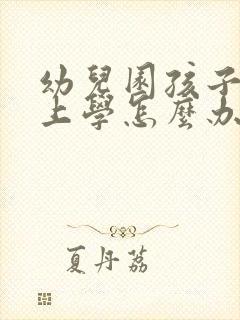 幼兒園孩子
上學怎麼办
夏丹荔